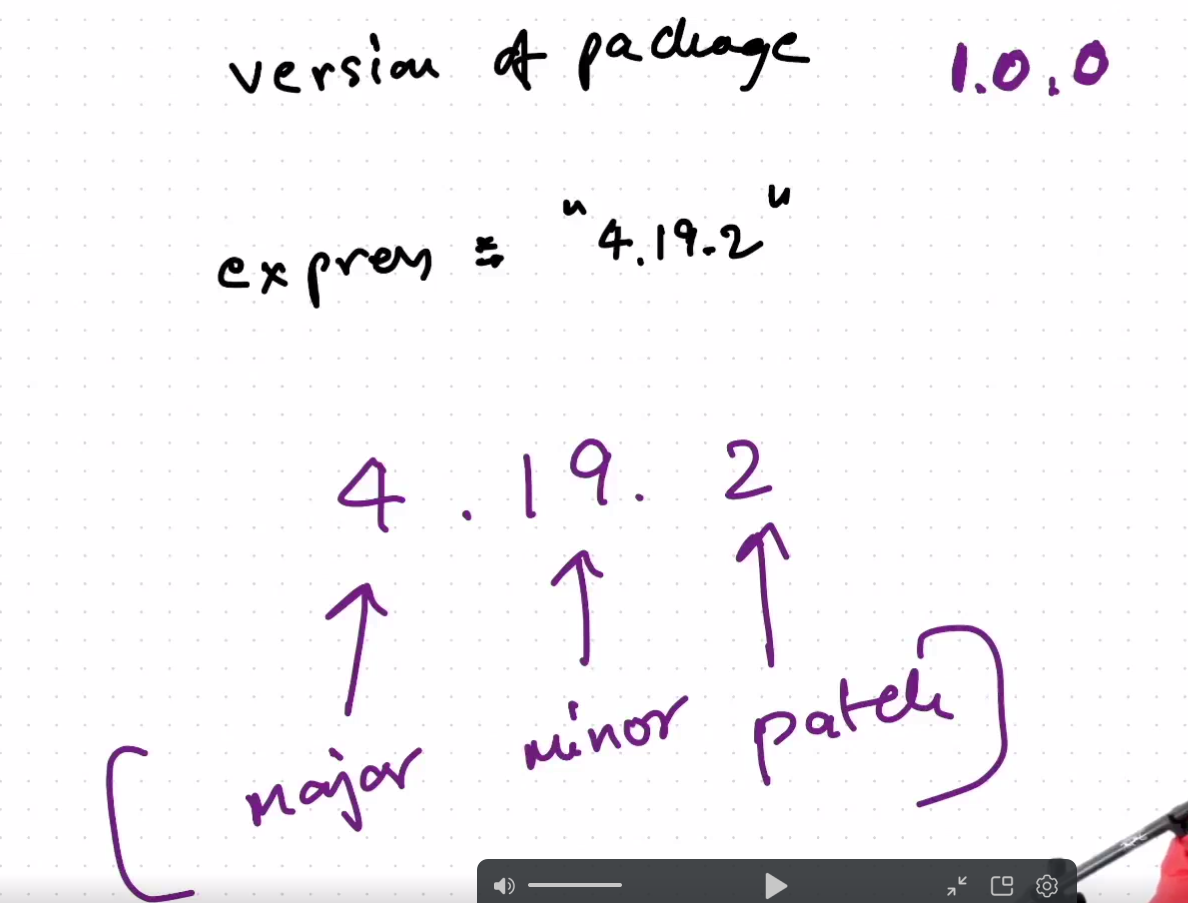 version of package 1.0.0
express = "4.19.2"
4.19.2
major minor patch